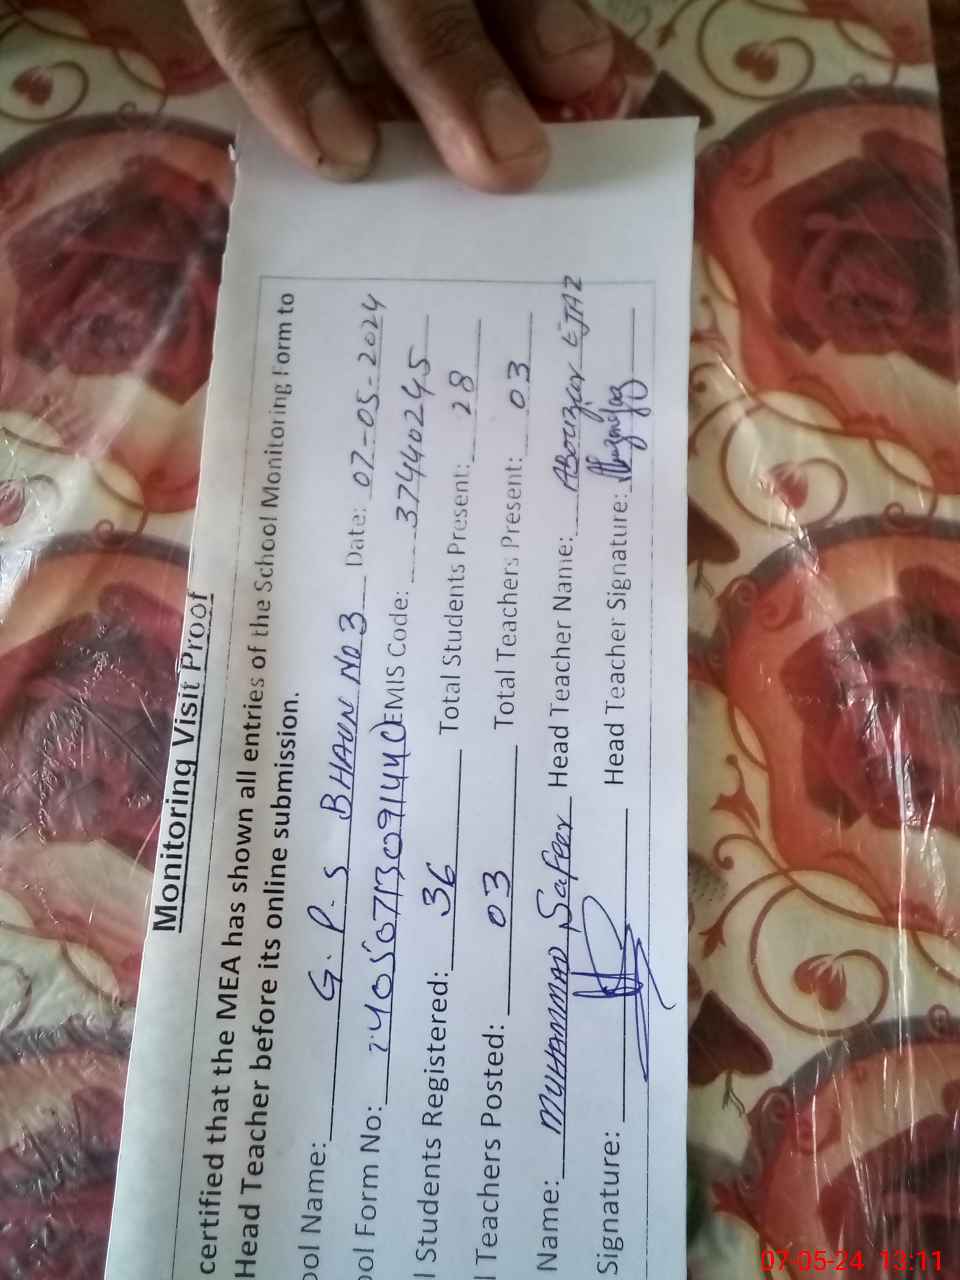 Monitoring Visit Proof
certified that the MEA has shown all entries of the School Monitoring Form to
Head Teacher before its online submission.
ool Name: G. P. S BHAUN NO 3 Date: 07-05-2024
ool Form No: EMIS Code: 37440245
l Students Registered: 36 Total Students Present: 28
l Teachers Posted: 03 Total Teachers Present: 03
Name: MUHAMMAD Safeer Head Teacher Name: ABouzar EJAZ
Signature: Head Teacher Signature:
07-05-24 13:11